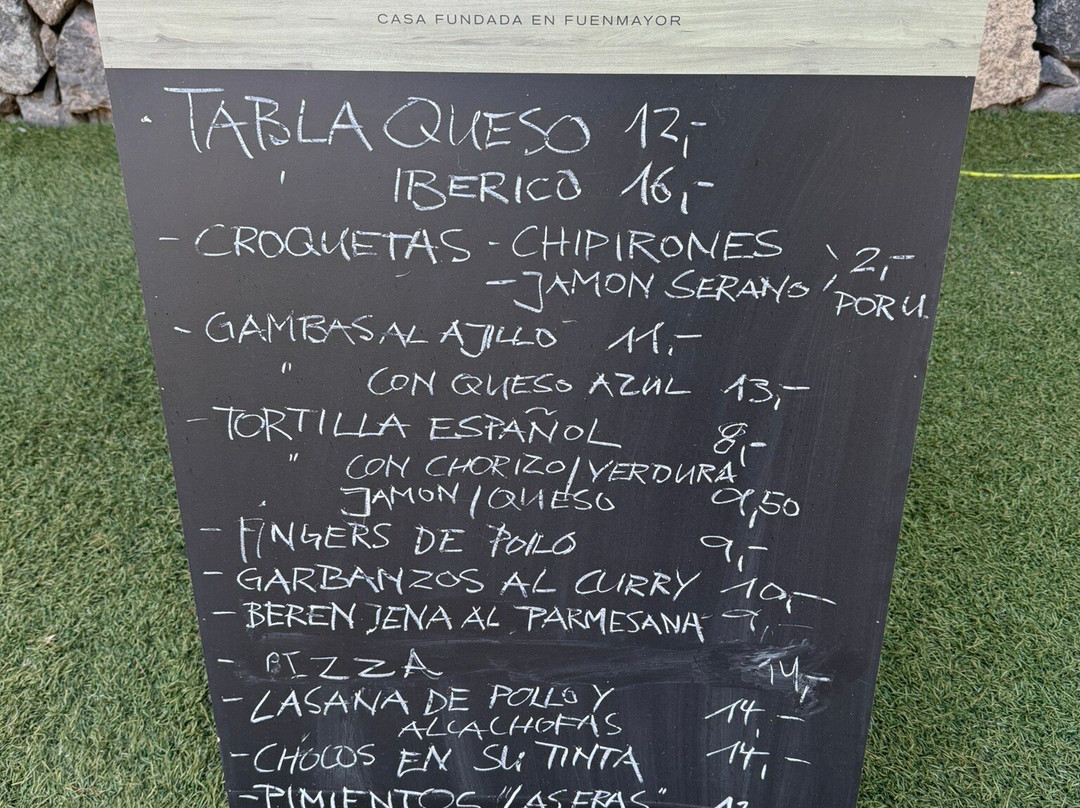 CASA FUNDADA EN FUENMAYOR
· TABLA QUESO 12,-
' IBERICO 16,-
- CROQUETAS - CHIPIRONES 2,-
- JAMON SERANO POR U.
- GAMBAS AL AJILLO 11,-
" CON QUESO AZUL 13,-
- TORTILLA ESPAÑOL 8,-
" CON CHORIZO/VERDURA
JAMON/QUESO 9,50
- FINGERS DE POLLO 9,-
- GARBANZOS AL CURRY 10,-
- BERENJENA AL PARMESANA 9,-
- PIZZA 14,-
- LASANA DE POLLO Y 14,-
ALCACHOFAS
- CHOCOS EN SU TINTA 14,-
- PIMIENTOS "LASERAS"